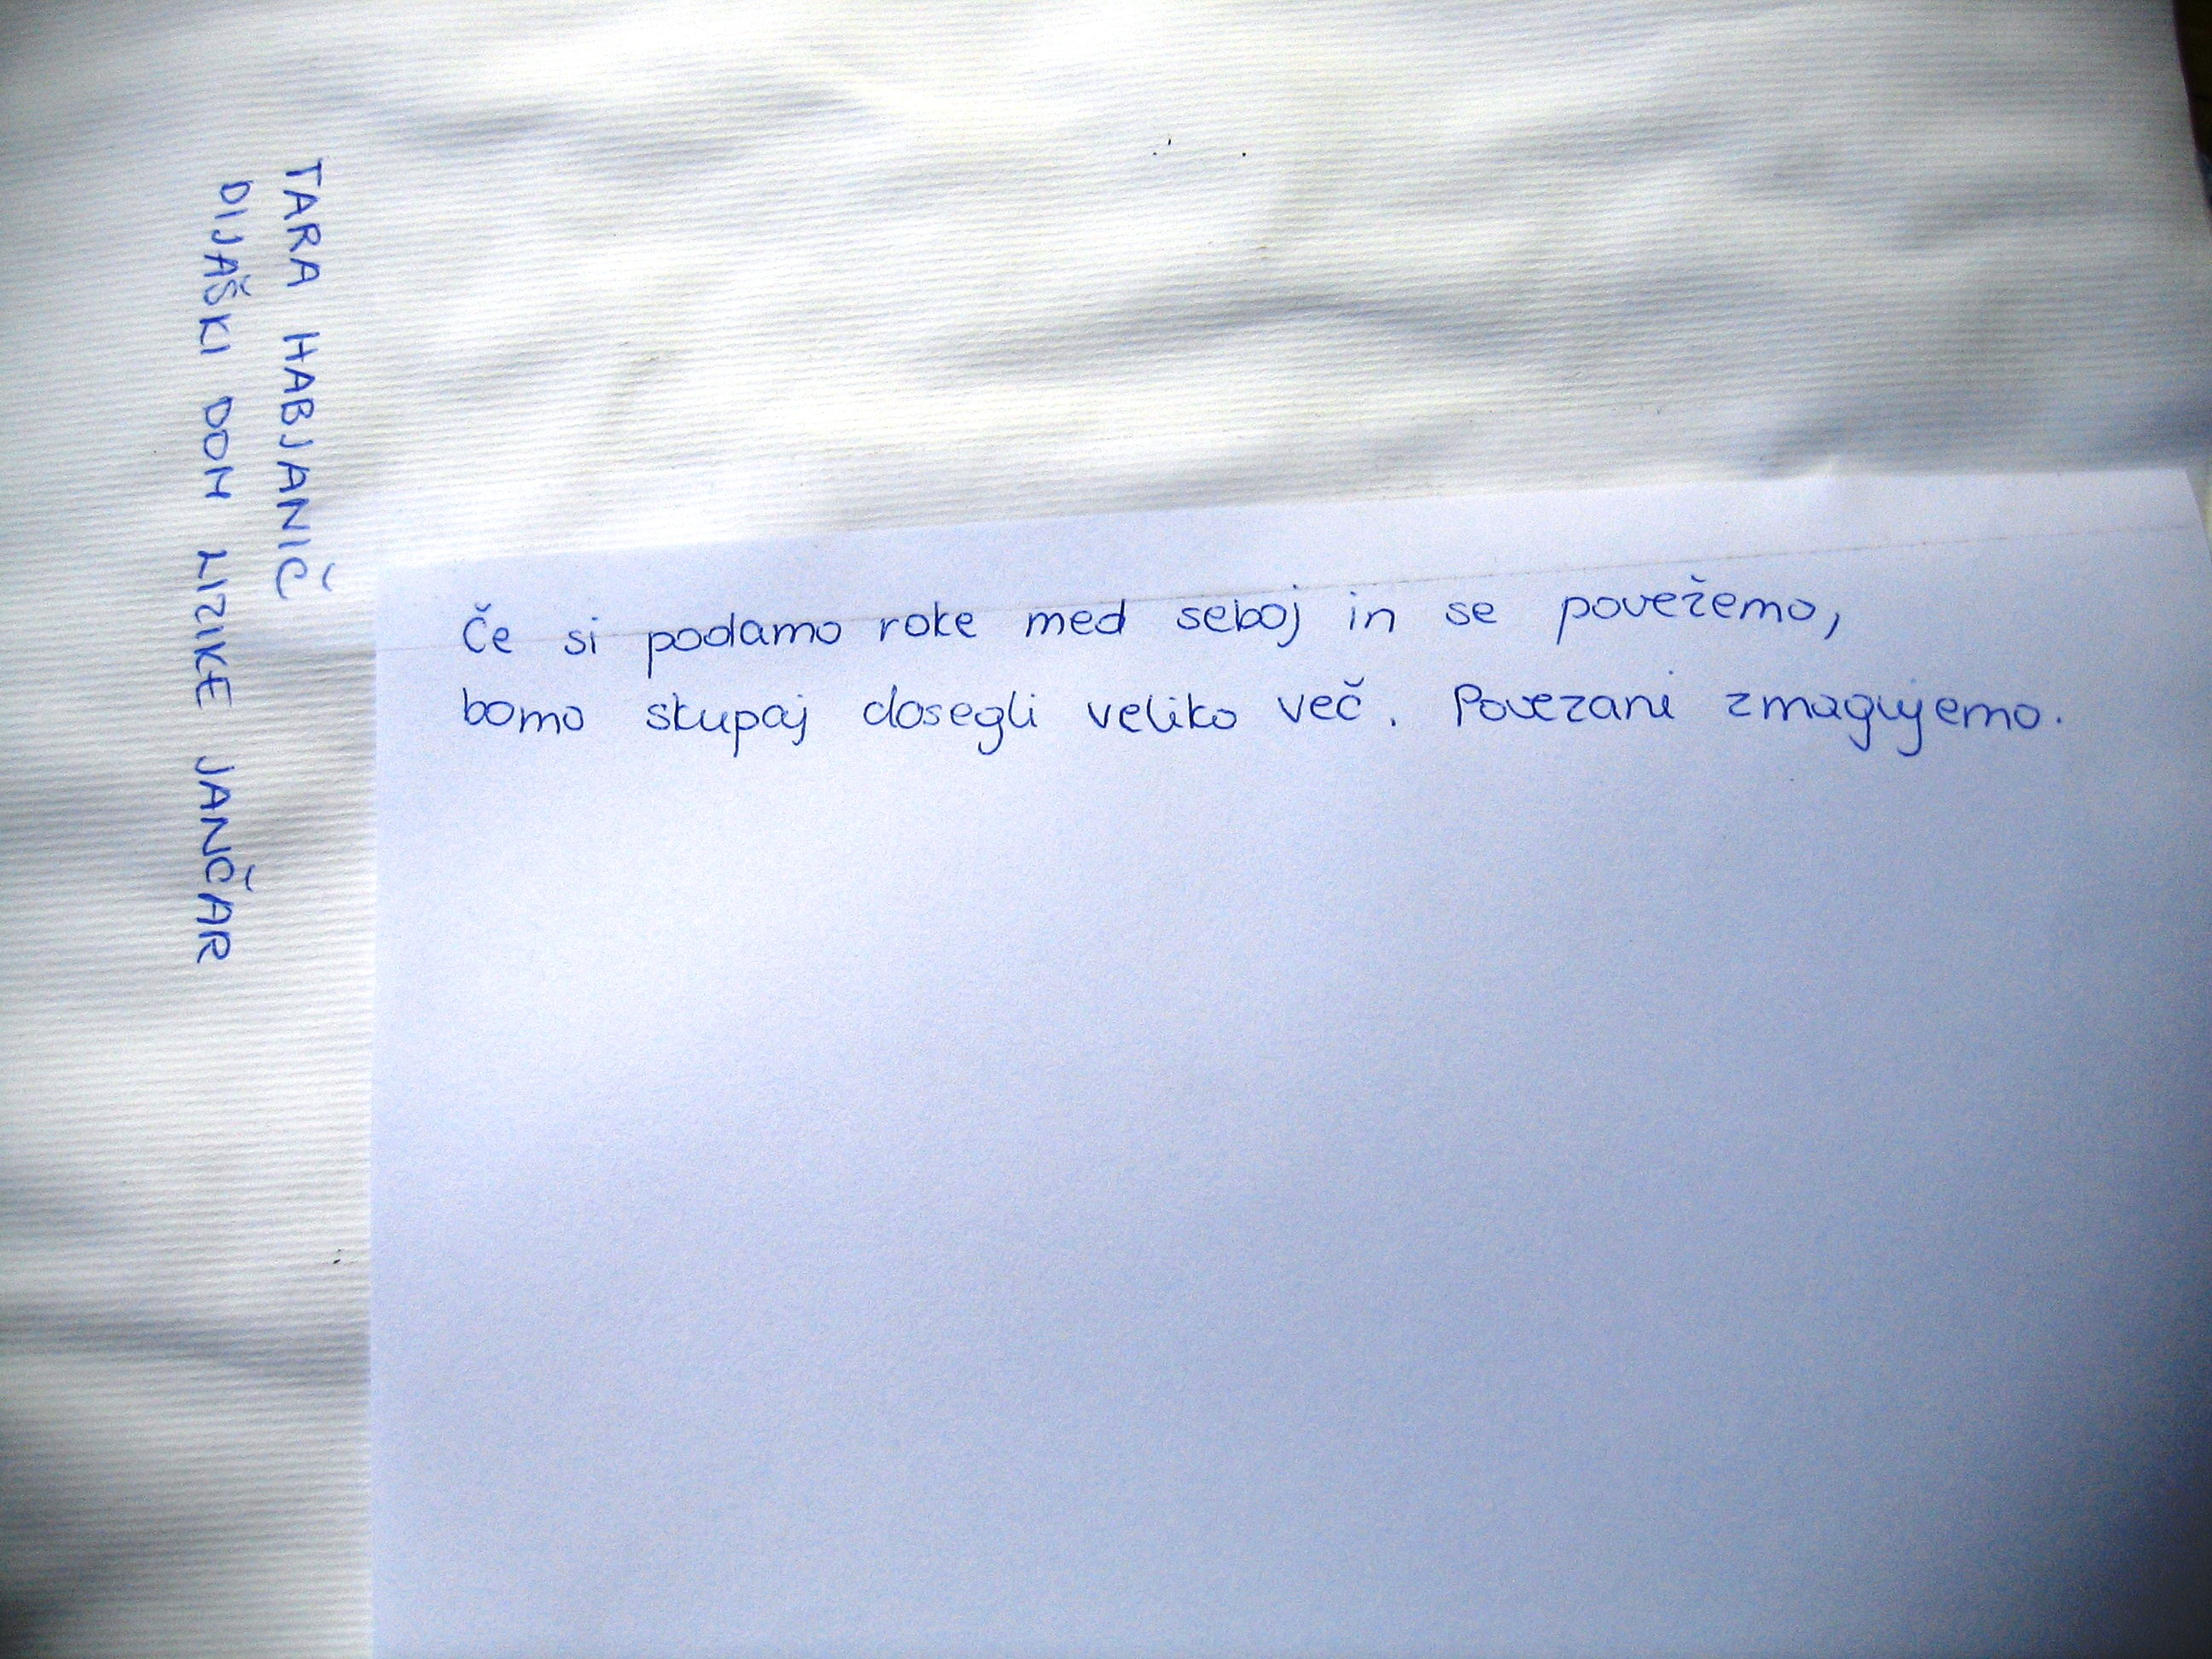 TARA HABJANIČ
DIJAŠKI DOM LIZIKE JANČAR
Če si podamo roke med seboj in se povežemo,
bomo skupaj dosegli veliko več. Povezani zmagujemo.